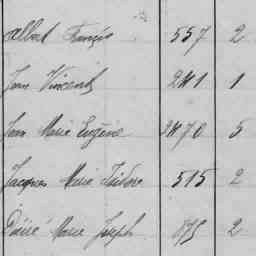 Albert Francis 557 2
Jean Vincent 2411 1
Jean Marie Eugène 2470 5
Jacques Marie Isidore 515 2
Marie Joseph 875 2